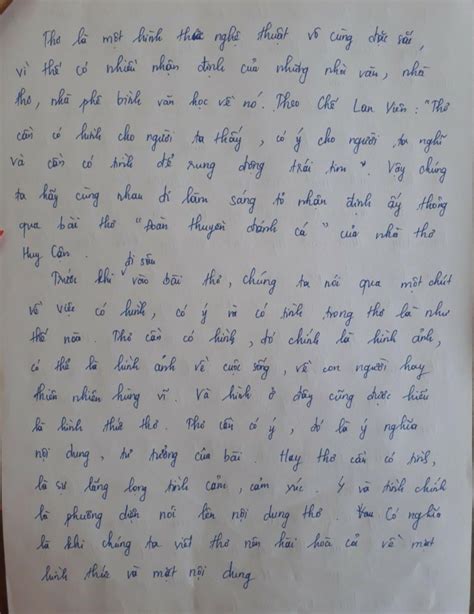 Thơ là một hình thức nghệ thuật vô cùng đặc sắc,
vì thế có nhiều nhận định của những nhà văn, nhà
thơ, nhà phê bình văn học về nó. Theo Chế Lan Viên: "Thơ
cần có hình cho người ta thấy, có ý cho người ta nghĩ
và cần có tình để rung động trái tim". Vậy chúng
ta hãy cùng nhau đi làm sáng tỏ nhận định ấy thông
qua bài thơ "Đoàn thuyền đánh cá" của nhà thơ
Huy Cận.
Trước khi đi sâu vào bài thơ, chúng ta nói qua một chút
về việc có hình, có ý và có tình trong thơ là như
thế nào. Thơ cần có hình, đó chính là hình ảnh,
có thể là hình ảnh về cuộc sống, về con người hay
thiên nhiên hùng vĩ. Và hình ở đây cũng được hiểu
là hình thức thơ. Thơ cần có ý, đó là ý nghĩa
nội dung, tư tưởng của bài. Hay thơ cần có tình,
là sự lắng lòng tình cảm, cảm xúc. Ý và tình chính
là phương diện nói lên nội dung thơ. Có nghĩa
là khi chúng ta viết thơ nên hài hoà cả về mặt
hình thức và mặt nội dung